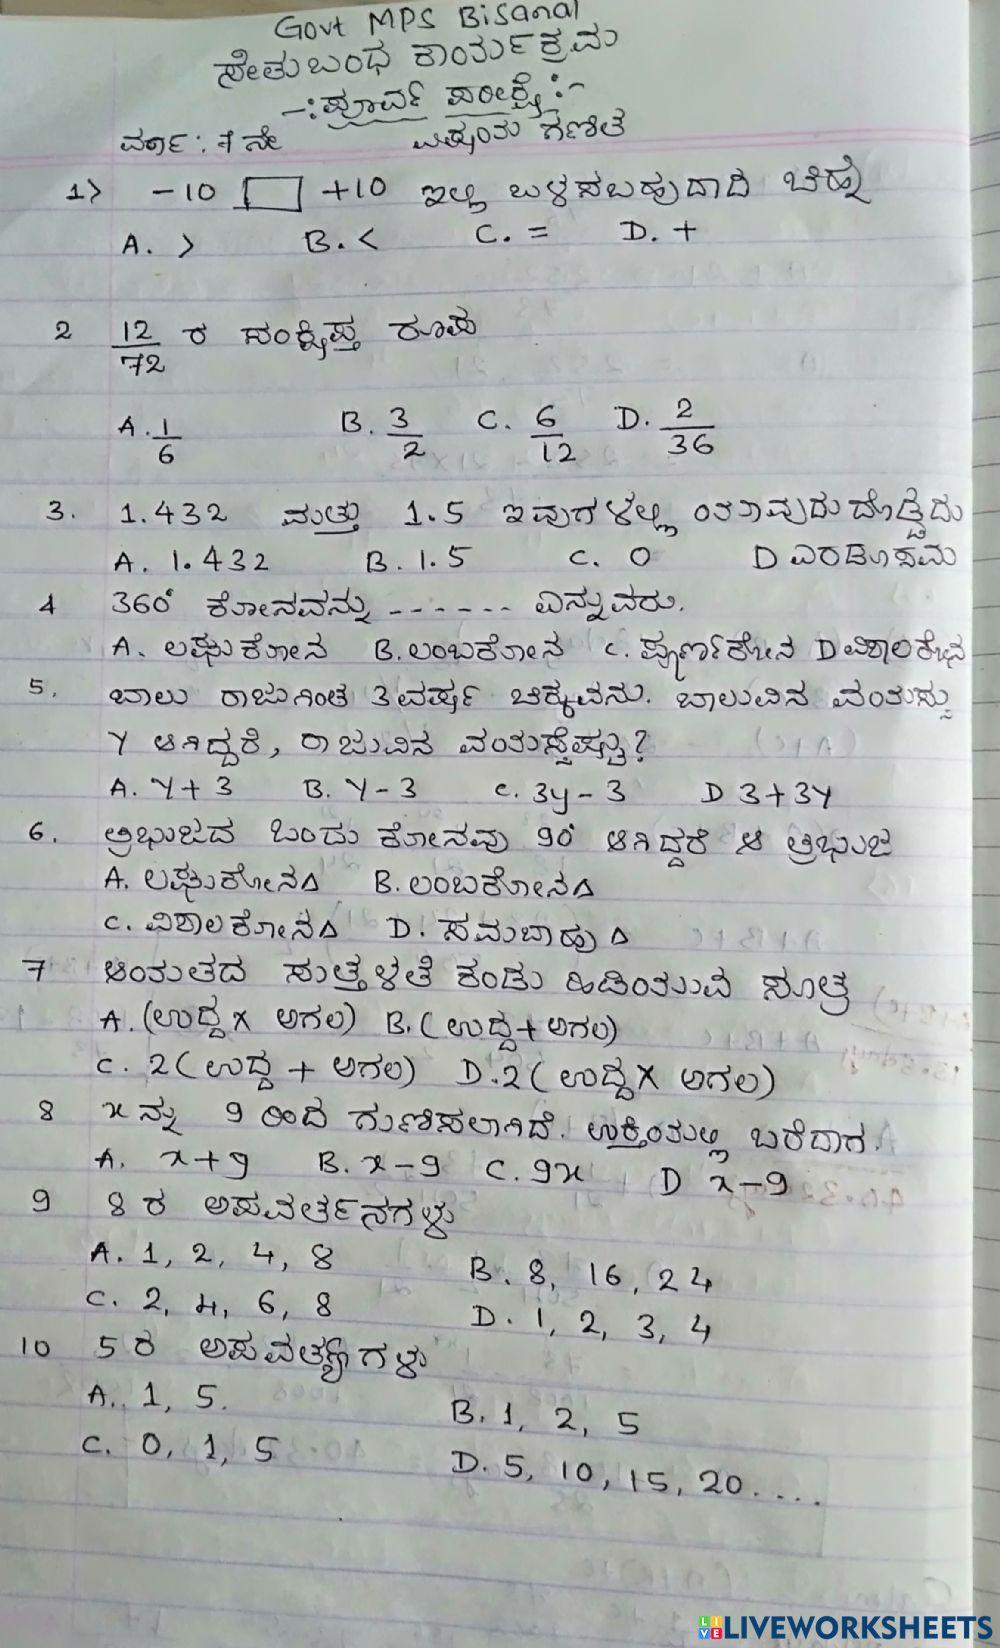 Govt MPS Bisanal
ಸೇತುಬಂಧ ಕಾರ್ಯಕ್ರಮ
-:ಪೂರ್ವ ಪರೀಕ್ಷೆ:-
ವರ್ಗ: 7 ನೇ ವಿಷಯ ಗಣಿತ
1> -10 □ +10 ಇಲ್ಲಿ ಬಳಸಬಹುದಾದ ಚಿಹ್ನೆ
A. > B. < C. = D. +
2 12/72 ರ ಸಂಕ್ಷಿಪ್ತ ರೂಪ
A. 1/6 B. 3/2 C. 6/12 D. 2/36
3. 1.432 ಮತ್ತು 1.5 ಇವುಗಳಲ್ಲಿ ಯಾವುದು ದೊಡ್ಡದು
A. 1.432 B. 1.5 C. 0 D ಎರಡೂ ಸಮ
4 360° ಕೋನವನ್ನು ------ ಎನ್ನುವರು.
A. ಲಘುಕೋನ B. ಲಂಬಕೋನ C. ಪೂರ್ಣಕೋನ D ವಿಶಾಲಕೋನ
5. ಬಾಲು ರಾಜುಗಿಂತ 3 ವರ್ಷ ಚಿಕ್ಕವನು. ಬಾಲುವಿನ ವಯಸ್ಸು
Y ಆಗಿದ್ದರೆ, ರಾಜುವಿನ ವಯಸ್ಸೆಷ್ಟು?
A. Y+3 B. Y-3 C. 3y-3 D 3+3Y
6. ತ್ರಿಭುಜದ ಒಂದು ಕೋನವು 90° ಆಗಿದ್ದರೆ ಆ ತ್ರಿಭುಜ
A. ಲಘುಕೋನ∆ B. ಲಂಬಕೋನ∆
C. ವಿಶಾಲಕೋನ∆ D. ಸಮಬಾಹು ∆
7 ಆಯತದ ಸುತ್ತಳತೆ ಕಂಡು ಹಿಡಿಯುವ ಸೂತ್ರ
A. (ಉದ್ದ x ಅಗಲ) B. (ಉದ್ದ + ಅಗಲ)
C. 2(ಉದ್ದ + ಅಗಲ) D. 2(ಉದ್ದ x ಅಗಲ)
8 x ನ್ನು 9 ರಿಂದ ಗುಣಿಸಲಾಗಿದೆ. ಉಕ್ತಿಯಲ್ಲಿ ಬರೆದಾಗ.
A. x+9 B. x-9 C. 9x D x-9
9 8 ರ ಅಪವರ್ತನಗಳು
A. 1, 2, 4, 8 B. 8, 16, 24
C. 2, 4, 6, 8 D. 1, 2, 3, 4
10 5 ರ ಅಪವರ್ತ್ಯಗಳು
A. 1, 5. B. 1, 2, 5
C. 0, 1, 5 D. 5, 10, 15, 20....
LIVEWORKSHEETS